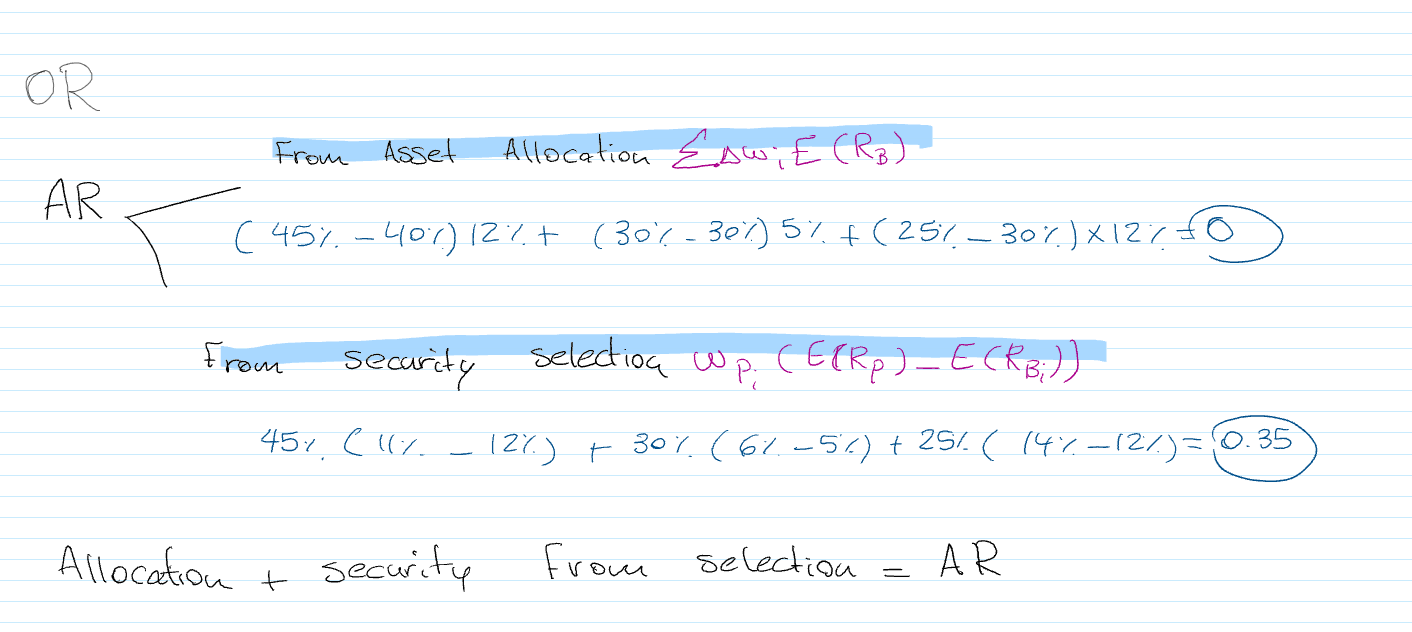 OR
From Asset Allocation ΣΔwᵢE(R_B)
AR
(45% - 40%) 12% + (30% - 30%) 5% + (25% - 30%) × 12% = 0
From security selection w_Pᵢ (E(R_P) - E(R_Bᵢ))
45% (11% - 12%) + 30% (6% - 5%) + 25% (14% - 12%) = 0.35
Allocation + security From selection = AR